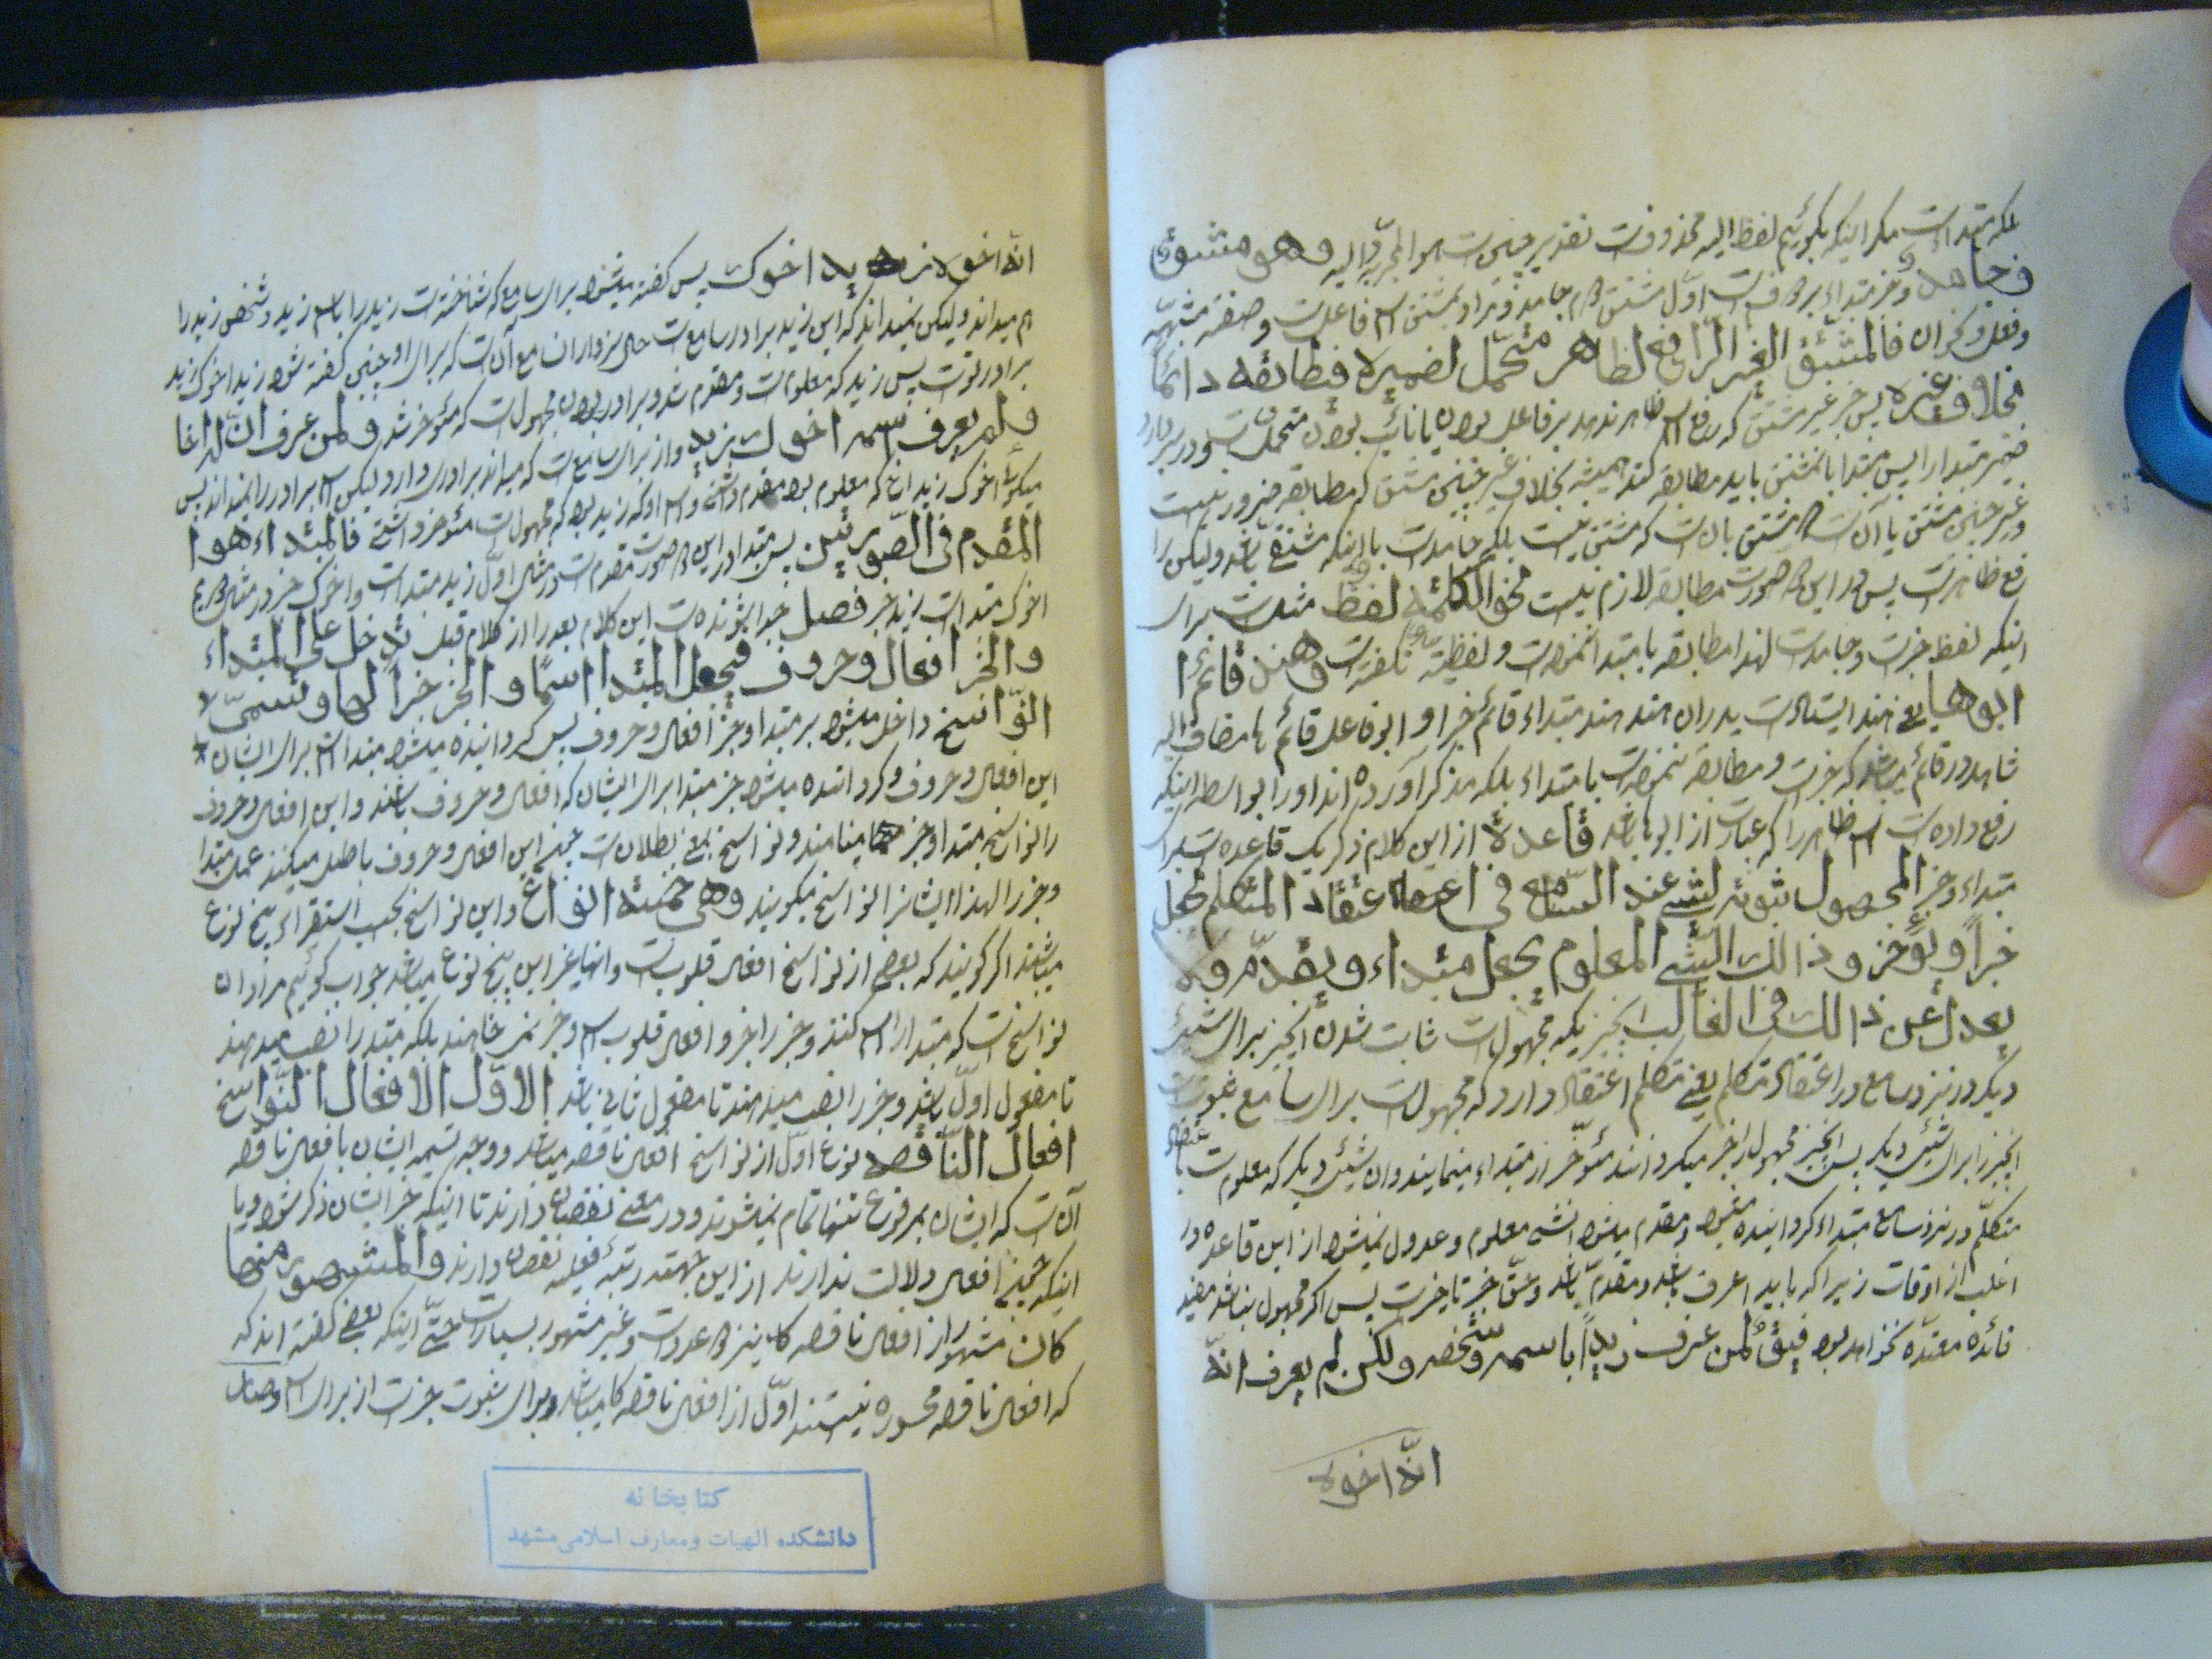 بلکه مبتداء است مگر اینکه بگوئیم لفظ الیه محذوفست تقدیر چنین است هو المجرّد الیه وهو مشتق
وجامد و خبر مبتداء بر دو قسمت اول مشتق دوم جامد و مراد بمشتق اسم فاعلست و صفة مشبهه
وفعل وکذا آن فالمشتق الغیر الرّافع لظاهر متحمّل لضمیره فطابقه دائماً
بخلاف غیره پس خبر غیر مشتق که رفع اسم ظاهر ندهد بر فاعل بودن یا نائب بودن متحمل است و دربردارد
ضمیر مبتدا را پس مبتدا با مشتق باید مطابقه کند همیشه بخلاف غیر چنین مشتق که مطابقه ضرور نیست
وغیر چنین مشتق یا آن است که مشتق یان است که مشتق نیست بلکه جامدست یا اینکه مشتق باشد ولیکن را
رفع ظاهر است پس در این دو صورت مطابقه لازم نیست نحو الکلمة لفظ مثلست برای
اینکه لفظ خبرست و جامدست لهذا مطابقه با مبتدا ننموده است و لفظیة نگفته است وهند قائم ا
ابوها یعنی هند ایستاده است پدر آن هند هند مبتداء قائم خبر او ابو فاعل قائم ها مضاف الیه
شاهد در قائم میباشد که خبرست و مطابقه ننموده است با مبتداء بلکه مذکر آورده اند او را بواسطه اینکه
رفع داده است اسم ظاهر را که عبارت از ابوها باشد قاعدة از این کلام ذکر یک قاعده است برای
مبتداء و خبر المجهول ثبوته لشیء عند السّامع فی اعتقاد المتکلم یجعل
خبراً ویؤخّر وذالک الشّیء المعلوم یجعل مبتداء ویقدّم ولا
یعدل عن ذالک فی الغالب انچیزیکه مجهول است ثابت شدن انچیز برای شیئ
دیگر در نزد سامع در اعتقاد متکلم یعنی متکلم اعتقاد دارد که مجهول است برای سامع ثبوت
انچیز را برای شیئ دیگر پس انچیز مجهول را خبر میگردانند و مؤخّر از مبتداء مینمایند و ان شیئ دیگر که معلوم است باعتقاد
متکلّم در نزد سامع مبتداء گردانیده میشود و مقدم میشود انشیء معلوم و عدول نمیشود از این قاعده در
اغلب از اوقات زیراکه باید اعرف باشد و مقدم باشد و حقّ خبر تاخیر است پس اگر مجهول نباشد مفید
فائده معتدّه نخواهد بود فیقال لمن عرف زیداً باسمه وشخصه ولکن لم یعرف انّه
انّه اخوه
انّه اخوه زید اخوک پس گفته میشود برای سامع که شناخته است زید را باسم زید و شخص زید را
هم میداند ولیکن نمیداند که این زید برادر سامع است حال سزاوار ان مع آن است که برای او چنین گفته شود زید اخوک زید
برادر توست پس زید که معلوم است و مقدم شد و برادر بودن مجهول است که مؤخر شد ولمن عرف انّ له اخا
ولم یعرف اسمه اخوک زید و از برای سامع است که میداند برادری دارد لیکن اسم برادر را نمیداند پس
میگوئی اخوک زید اخ که معلوم بود مقدم داشته و اسم او که زید بود که مجهول است مؤخر داشتی فالمبتداء هو ا
المقدم فی الصّورتین پس مبتدا در این دو صورت مقدم است در مثال اول زید مبتداست و اخوک خبر در مثال دویم
اخوک مبتداست زید خبر فصل جدا شونده است این کلام بعد را از کلام قبل تدخل علی المبتداء
والخبر افعال وحروف فیجعل المبتدا اسمًا والخبر خبراً لها وتسمّی
النّواسخ داخل میشود بر مبتدا و خبر افعال و حروف پس گردانیده میشود مبتدا اسم برای ایشان
این افعال و حروف و گردانیده میشود خبر مبتدا برای ایشان که افعال و حروف باشند و این افعال و حروف
را نواسخ مبتدا و خبر مینامند و نواسخ بمعنی بطلان است چونکه این افعال و حروف باطل میکنند عمل مبتدا
و خبر را لهذا ایشانرا نواسخ میگویند وهی خمسة انواع و این نواسخ بحسب استقراء پنج نوع
میباشند اگر گویند که بعضی از نواسخ افعال قلوبست و انها غیر این پنج نوع میباشد جواب گوئیم مراد ان
نواسخ است که مبتدا را اسم کنند و خبر را خبر و افعال قلوب اسم و خبر نمیخواهند بلکه مبتدا را نصب میدهند
تا مفعول اول باشد و خبر را نصب میدهند تا مفعول ثانی باشد الاوّل الافعال النّواسخ
افعال النّاقصه نوع اوّل از نواسخ افعال ناقصه میباشد و وجه تسمیه ایشان بافعال ناقصه
آن است که ایشان بمرفوع تنها تمام نمیشوند و در معنی نقصان دارند تا اینکه خبر ایشان ذکر شود و یا
اینکه چون افعال دلالت ندارند از این جهت در رتبه فعلیه نقصان دارند والمشهور منها
کان مشهور از افعال ناقصه کا سیزده عدد است و غیر مشهور بسیار است حتّی اینکه بعضی گفته اند که
که افعال ناقصه محصوره نیستند اوّل از افعال ناقصه کا میباشد و برای ثبوت خبرست از برای اسم وصار
کتابخانه
دانشکده الهیات ومعارف اسلامی مشهد